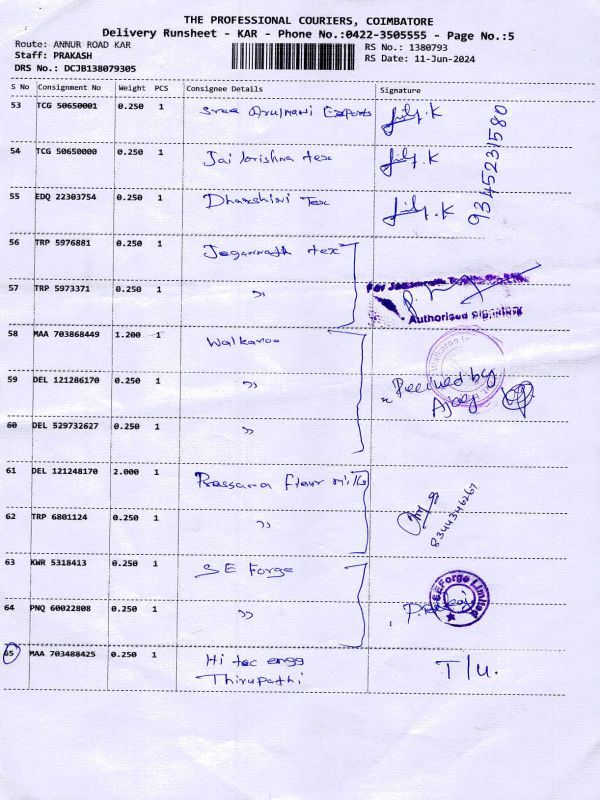 THE PROFESSIONAL COURIERS, COIMBATORE
Delivery Runsheet - KAR - Phone No.:0422-3505555 - Page No.:5
Route: ANNUR ROAD KAR
RS No.: 1380793
Staff: PRAKASH
RS Date: 11-Jun-2024
DRS No.: DCJB138079305
S No Consignment No Weight PCS Consignee Details Signature
53 TCG 50650001 0.250 1 Sree Arulmani Exports
54 TCG 50650000 0.250 1 Jai krishna tex
9345231580
55 EDQ 22303754 0.250 1 Dharshini Tex
56 TRP 5976881 0.250 1 Jegannath tex
57 TRP 5973371 0.250 1 〃
For Jagannath
Authorised Signatory
58 MAA 703868449 1.200 1 Walkaroo
59 DEL 121286170 0.250 1 〃 Received by
Ajay
60 DEL 529732627 0.250 1 〃
61 DEL 121248170 2.000 1 Prassana flour mills
62 TRP 6801124 0.250 1 〃 8344346267
63 KWR 5318413 0.250 1 S E Forge
64 PNQ 60022808 0.250 1 〃 SEForge Limited
65 MAA 703488425 0.250 1 Hi tec engg T/U.
Thirupathi